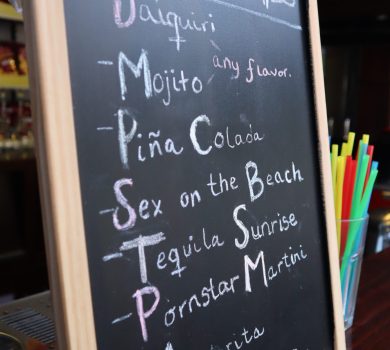 Daiquiri
- Mojito any flavor.
- Piña Colada
- Sex on the Beach
- Tequila Sunrise
- Pornstar Martini